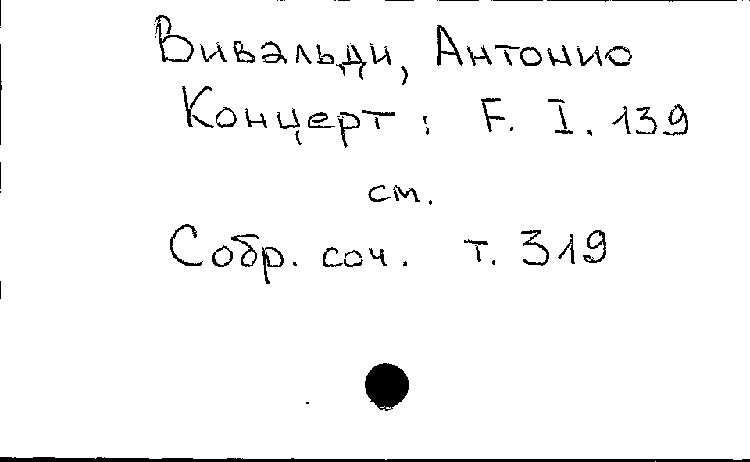 Вивальди, Антонио
Концерт : F. I. 139
см.
Собр. соч. т. 319